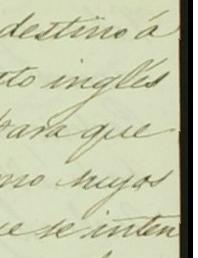 destino á
to inglés
para que
mo suyos
ue se inten